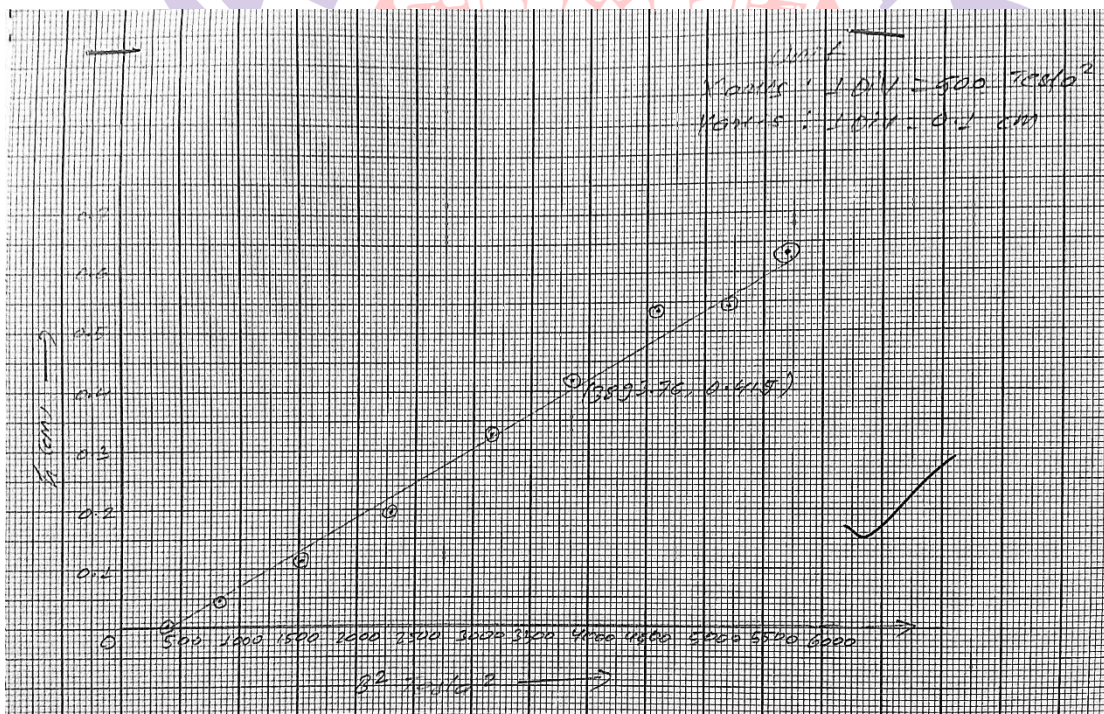 Unit
X axis : 1 Div = 500 Tesla²
Y axis : 1 Div = 0.1 cm
0.7
0.6
0.5
0.4
0.3
0.2
0.1
(3893.76, 0.415)
h (cm) →
0 500 1000 1500 2000 2500 3000 3500 4000 4500 5000 5500 6000
B² Tesla² →